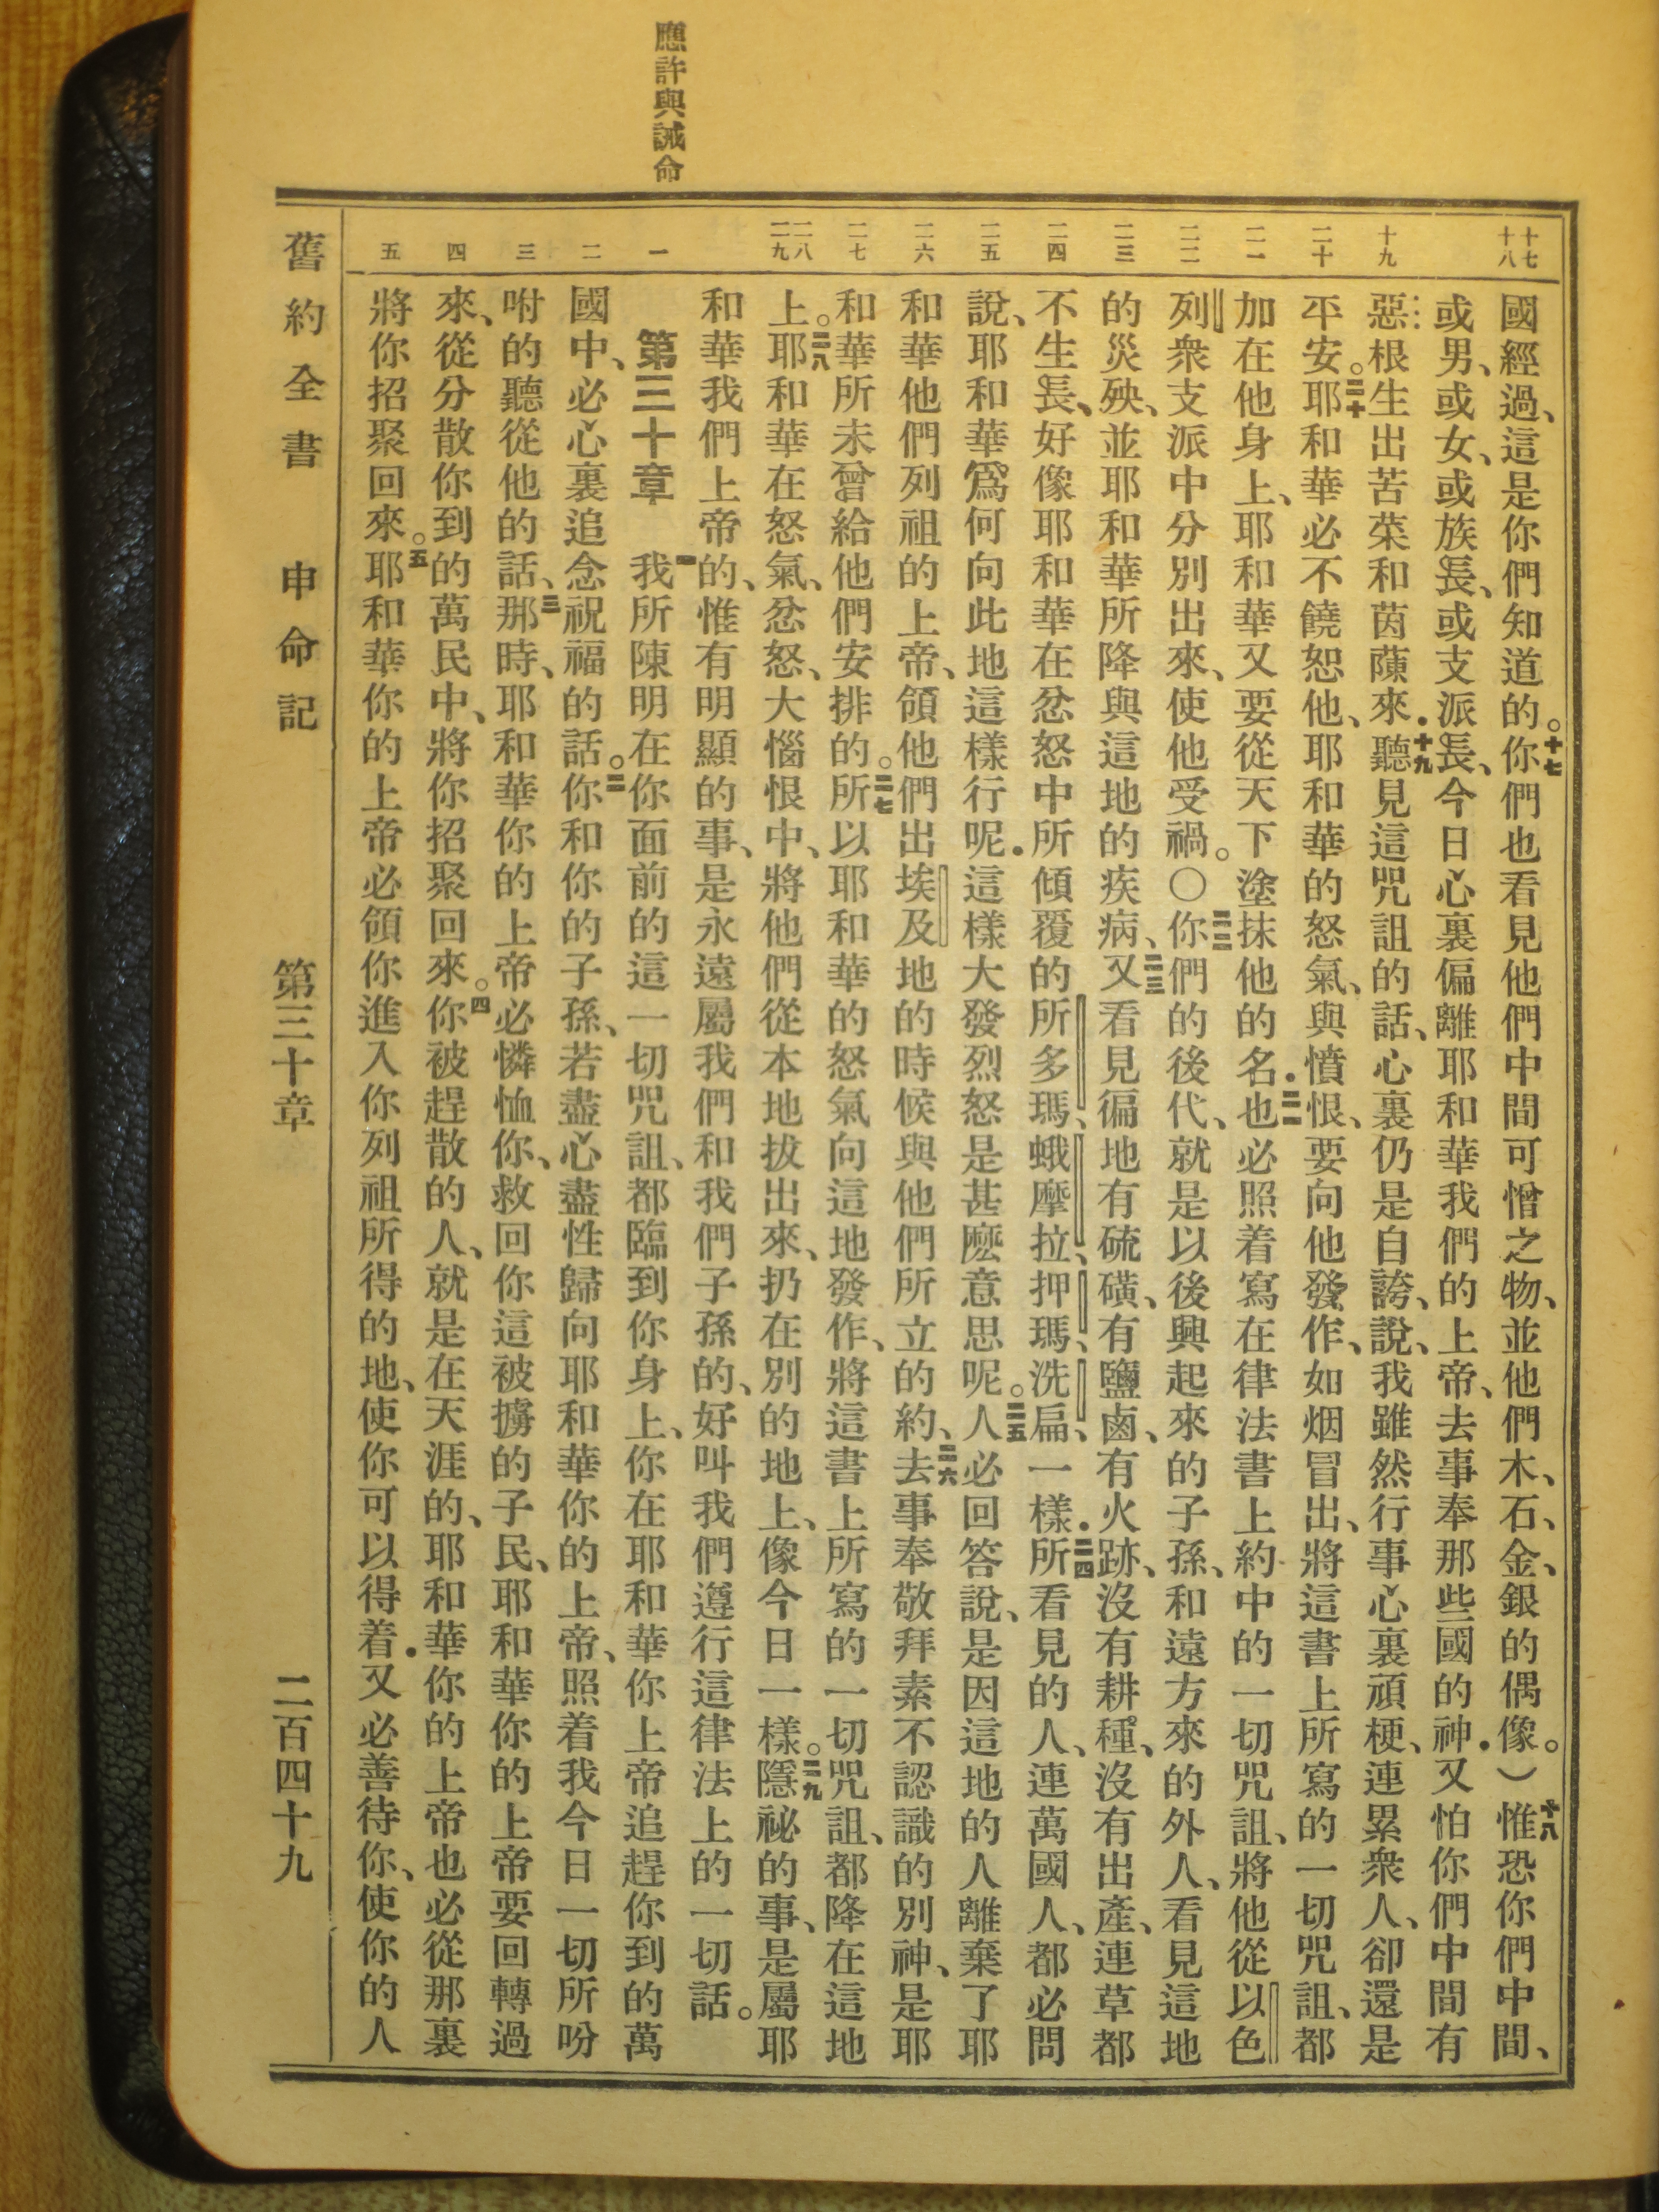 應許與誡命
十七 十八 十九 二十 二一 二二 二三 二四 二五 二六 二七 二八 二九 一 二 三 四 五
國經過、這是你們知道的。十七你們也看見他們中間可憎之物、並他們木、石、金、銀的偶像。)十八惟恐你們中間、
或男、或女、或族長、或支派長、今日心裏偏離耶和華我們的上帝、去事奉那些國的神.又怕你們中間有
惡根生出苦菜和茵蔯來.十九聽見這咒詛的話、心裏仍是自誇、說、我雖然行事心裏頑梗、連累衆人、卻還是
平安。二十耶和華必不饒恕他、耶和華的怒氣、與憤恨、要向他發作、如烟冒出、將這書上所寫的一切咒詛、都
加在他身上、耶和華又要從天下塗抹他的名.二一也必照着寫在律法書上約中的一切咒詛、將他從以色
列衆支派中分別出來、使他受禍。○二二你們的後代、就是以後興起來的子孫、和遠方來的外人、看見這地
的災殃、並耶和華所降與這地的疾病、二三又看見徧地有硫磺、有鹽鹵、有火跡、沒有耕種、沒有出產、連草都
不生長、好像耶和華在忿怒中所傾覆的所多瑪、蛾摩拉、押瑪、洗扁、一樣.二四所看見的人、連萬國人、都必問
說、耶和華爲何向此地這樣行呢.這樣大發烈怒是甚麽意思呢。二五人必回答說、是因這地的人離棄了耶
和華他們列祖的上帝、領他們出埃及地的時候與他們所立的約、二六去事奉敬拜素不認識的別神、是耶
和華所未曾給他們安排的。二七所以耶和華的怒氣向這地發作、將這書上所寫的一切咒詛、都降在這地
上。二八耶和華在怒氣、忿怒、大惱恨中、將他們從本地拔出來、扔在別的地上、像今日一樣。二九隱祕的事、是屬耶
和華我們上帝的、惟有明顯的事、是永遠屬我們和我們子孫的、好叫我們遵行這律法上的一切話。
第三十章 一我所陳明在你面前的這一切咒詛、都臨到你身上、你在耶和華你上帝追趕你到的萬
國中、必心裏追念祝福的話。二你和你的子孫、若盡心盡性歸向耶和華你的上帝、照着我今日一切所吩
咐的聽從他的話、三那時、耶和華你的上帝必憐恤你、救回你這被擄的子民、耶和華你的上帝要回轉過
來、從分散你到的萬民中、將你招聚回來。四你被趕散的人、就是在天涯的、耶和華你的上帝也必從那裏
將你招聚回來。五耶和華你的上帝必領你進入你列祖所得的地、使你可以得着.又必善待你、使你的人
舊約全書 申命記 第三十章 二百四十九